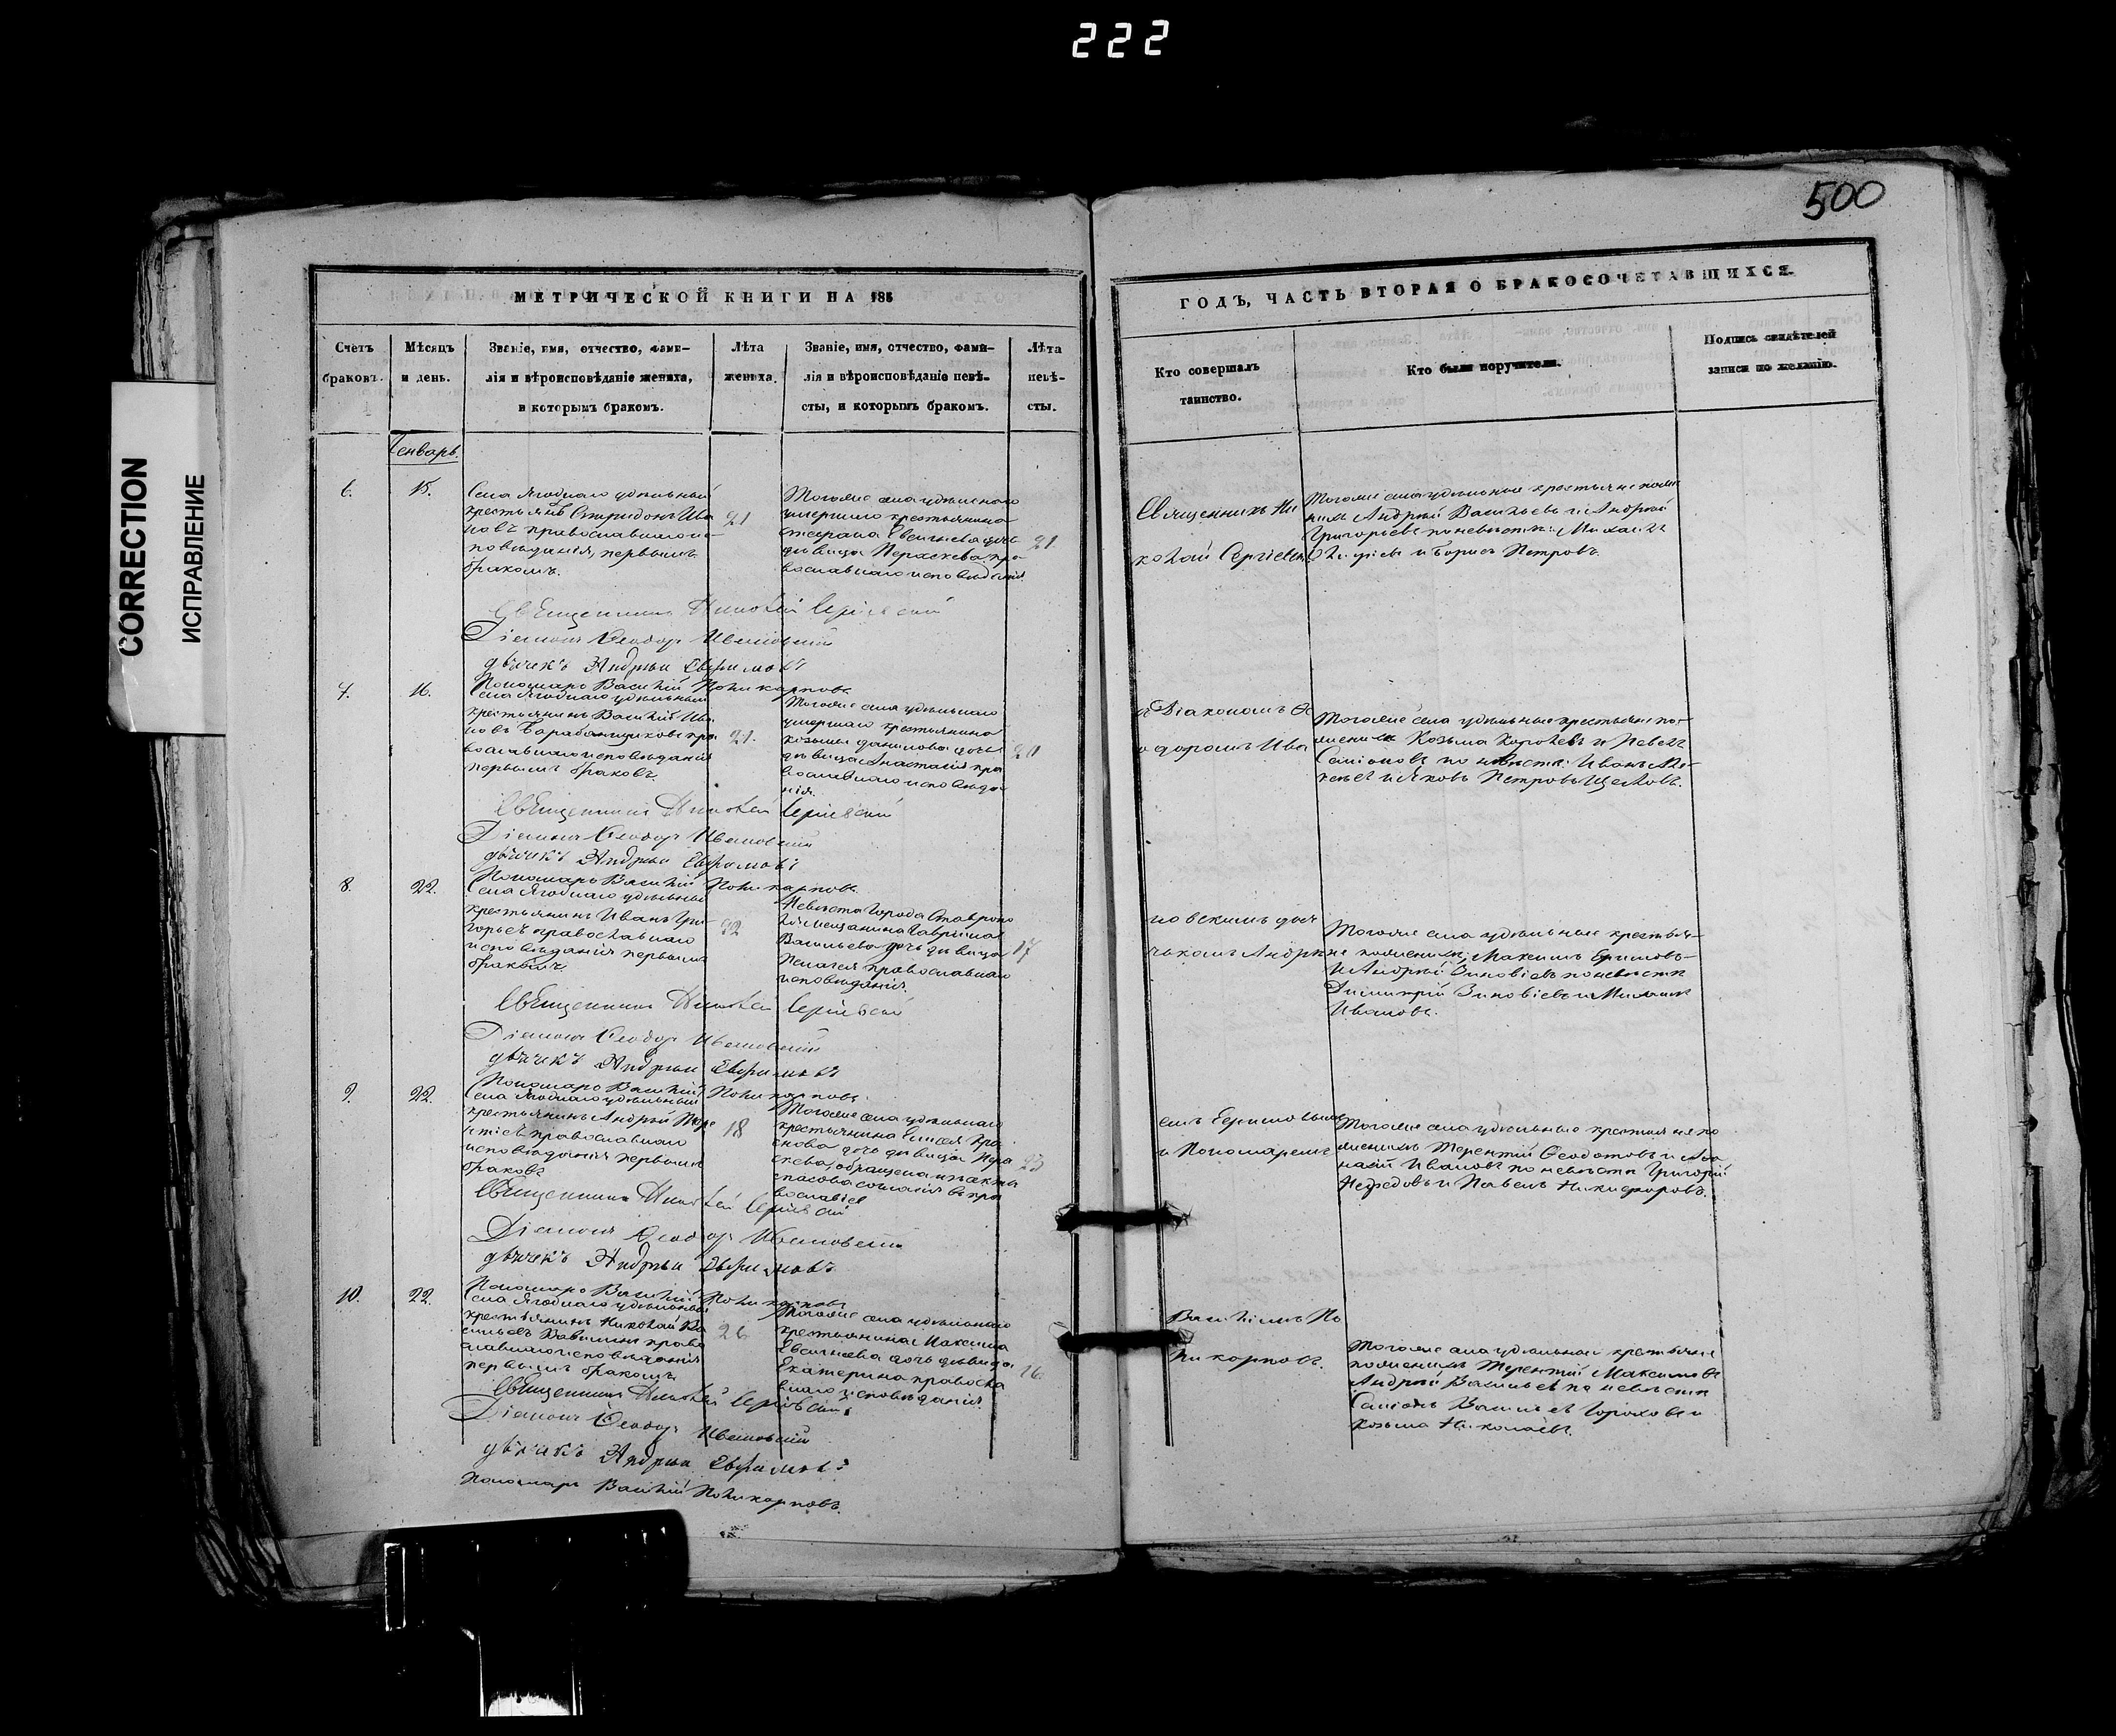 222
500
CORRECTION
ИСПРАВЛЕНИЕ
МЕТРИЧЕСКОЙ КНИГИ НА 185
Счетъ браковъ.
Мѣсяцъ и день.
Званіе, имя, отчество, фами-
лія и вѣроисповѣданіе жениха,
и которымъ бракомъ.
Лѣта
жениха.
Званіе, имя, отчество, фами-
лія и вѣроисповѣданіе невѣ-
сты, и которымъ бракомъ.
Лѣта
невѣ-
сты.
Генварь.
6.
15.
Села Ягоднаго удѣльный
крестьянинъ Спиридонъ Ива
новъ православнаго ис-
повѣданія, первымъ
бракомъ.
21
Тогоже села удѣльнаго
умершаго крестьянина
Евсигнеева дочь
дѣвица Параскева пра-
вославнаго исповѣданія
21.
Священникъ Николай Сергіевскій
Діаконъ Ѳеодоръ Ивановскій
дьячекъ Андрей Ефимовъ
Пономарь Василій Поликарповъ
7.
16.
Села Ягоднаго удѣльный
крестьянинъ Василій Ива
новъ Барабанщиковъ пра
вославнаго исповѣданія
первымъ бракомъ.
21.
Тогоже села удѣльнаго
умершаго крестьянина
Козьмы Данилова дочь
дѣвица Анастасія пра
вославнаго исповѣда
нія.
20
Священникъ Николай Сергіевскій
Діаконъ Ѳеодоръ Ивановскій
дьячекъ Андрей Ефимовъ
Пономарь Василій Поликарповъ.
8.
22.
Села Ягоднаго удѣльный
крестьянинъ Иванъ Гри-
горьевъ православнаго
исповѣданія первымъ
бракомъ.
22
Невѣста Города Ставропо
ля мещанина Гавріила
Васильева дочь дѣвица
Пелагея православнаго
исповѣданія.
17
Священникъ Николай Сергіевскій
Діаконъ Ѳеодоръ Ивановскій
дьячекъ Андрей Ефимовъ
Пономарь Василій Поликарповъ.
9.
22.
Села Ягоднаго удѣльный
крестьянинъ Андрей
православнаго
исповѣданія первымъ
бракомъ
18
Тогоже села удѣльнаго
крестьянина Елисея
дочь дѣвица Пара
скева, обращена изъ
спасова согласія въ пра
вославіе
23
Священникъ Николай Сергіевскій
Діаконъ Ѳеодоръ Ивановскій
дьячекъ Андрей Ефимовъ.
Пономарь Василій Поликарповъ
10.
22.
Села Ягоднаго удѣльный
крестьянинъ Николай Ва
сильевъ православнаго
исповѣданія
первымъ бракомъ
26
Тогоже села удѣльнаго
крестьянина Максима
Евсигнеева дочь дѣвица
Екатерина правосла
внаго исповѣданія
16.
Священникъ Николай Сергіевскій
Діаконъ Ѳеодоръ Ивановскій
дьячекъ Андрей Ефимовъ
Пономарь Василій Поликарповъ.
ГОДЪ, ЧАСТЬ ВТОРАЯ О БРАКОСОЧЕТАВШИХСЯ.
Кто совершалъ
таинство.
Кто были поручители.
Подпись свидѣтелей
записи по желанію.
Священникъ Ни
колай Сергіевскій
Тогоже села удѣльные крестьяне поже
нихѣ Андрей Васильевъ и Андрей
Григорьевъ по невѣстѣ: Михаилъ
и Борисъ Петровъ.
съ Діакономъ Ѳе
одоромъ Ива
Тогоже села удѣльные крестьяне по
женихѣ Козьма Королевъ и Павелъ
Самсоновъ по невѣстѣ: Иванъ
и Яковъ Петровъ Щелковъ.
новскимъ дья
чкомъ Андре
Тогоже села удѣльные крестья-
не по женихѣ, Максимъ Ефимовъ
и Андрей Зиновіевъ по невѣстѣ
Димитрій Зиновіевъ и Михаилъ
Ивановъ.
емъ Ефимовымъ
и Пономаремъ
Тогоже села удѣльные крестьяне по
женихѣ Терентій Ѳеодотовъ и Аѳа
насій Ивановъ по невѣстѣ Григорій
Нефедовъ и Павелъ Никифоровъ.
Василіемъ По
ликарповъ.
Тогоже села удѣльные крестьяне
по женихѣ Терентій Максимовъ
Андрей Васильевъ по невѣстѣ
Самсонъ Васильевъ Гороховъ и
Козьма Николаевъ.